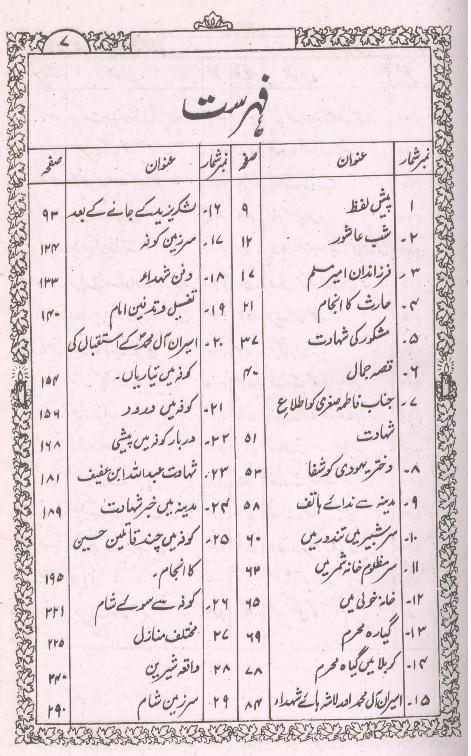 ۷
فہرست
نمبر شمار عنوان صفحہ
۱ پیش لفظ ۹
۲۔ شب عاشور ۱۲
۳۔ فرزندان امیر مسلم ۱۷
۴۔ حارث کا انجام ۲۱
۵۔ مشکور کی شہادت ۳۷
۶۔ قصہ جمال ۴۰
۷۔ جناب فاطمہ صغریٰ کو اطلاع
شہادت ۵۱
۸۔ دختر یہودی کو شفا ۵۳
۹۔ مدینہ سے ندائے ہاتف ۵۸
۱۰۔ سر شبیر میں تندور میں ۶۰
۱۱۔ سر مظلوم خانہ شمر میں ۶۳
۱۲۔ خانہ خولی میں ۶۵
۱۳۔ گیارہ محرم ۶۹
۱۴۔ کربلا میں گیارہ محرم ۷۸
۱۵۔ اسیران آل محمد اور لاشہ ہائے شہداء ۸۴
نمبر شمار عنوان صفحہ
۱۶۔ لشکر یزید کے جانے کے بعد ۹۳
۱۷۔ سرزمین کوفہ ۱۲۴
۱۸۔ دفن شہداء ۱۳۳
۱۹۔ تغسیل و تدفین امام ۱۴۰
۲۰۔ اسیران آل محمدؐ کے استقبال کی
کوفہ میں تیاریاں۔ ۱۵۴
۲۱۔ کوفہ میں درود ۱۵۶
۲۲۔ دربار کوفہ میں پیشی ۱۶۸
۲۳۔ شہادت عبداللہ ابن عفیف ۱۸۱
۲۴۔ مدینہ میں خبر شہادت ۱۸۹
۲۵۔ کوفہ میں چند قاتلین حسین
کا انجام۔ ۱۹۵
۲۶۔ کوفہ سے سوئے شام ۲۲۱
۲۷ مختلف منازل ۲۲۵
۲۸ واقعہ شیریں ۲۴۰
۲۹ سرزمین شام ۲۹۰